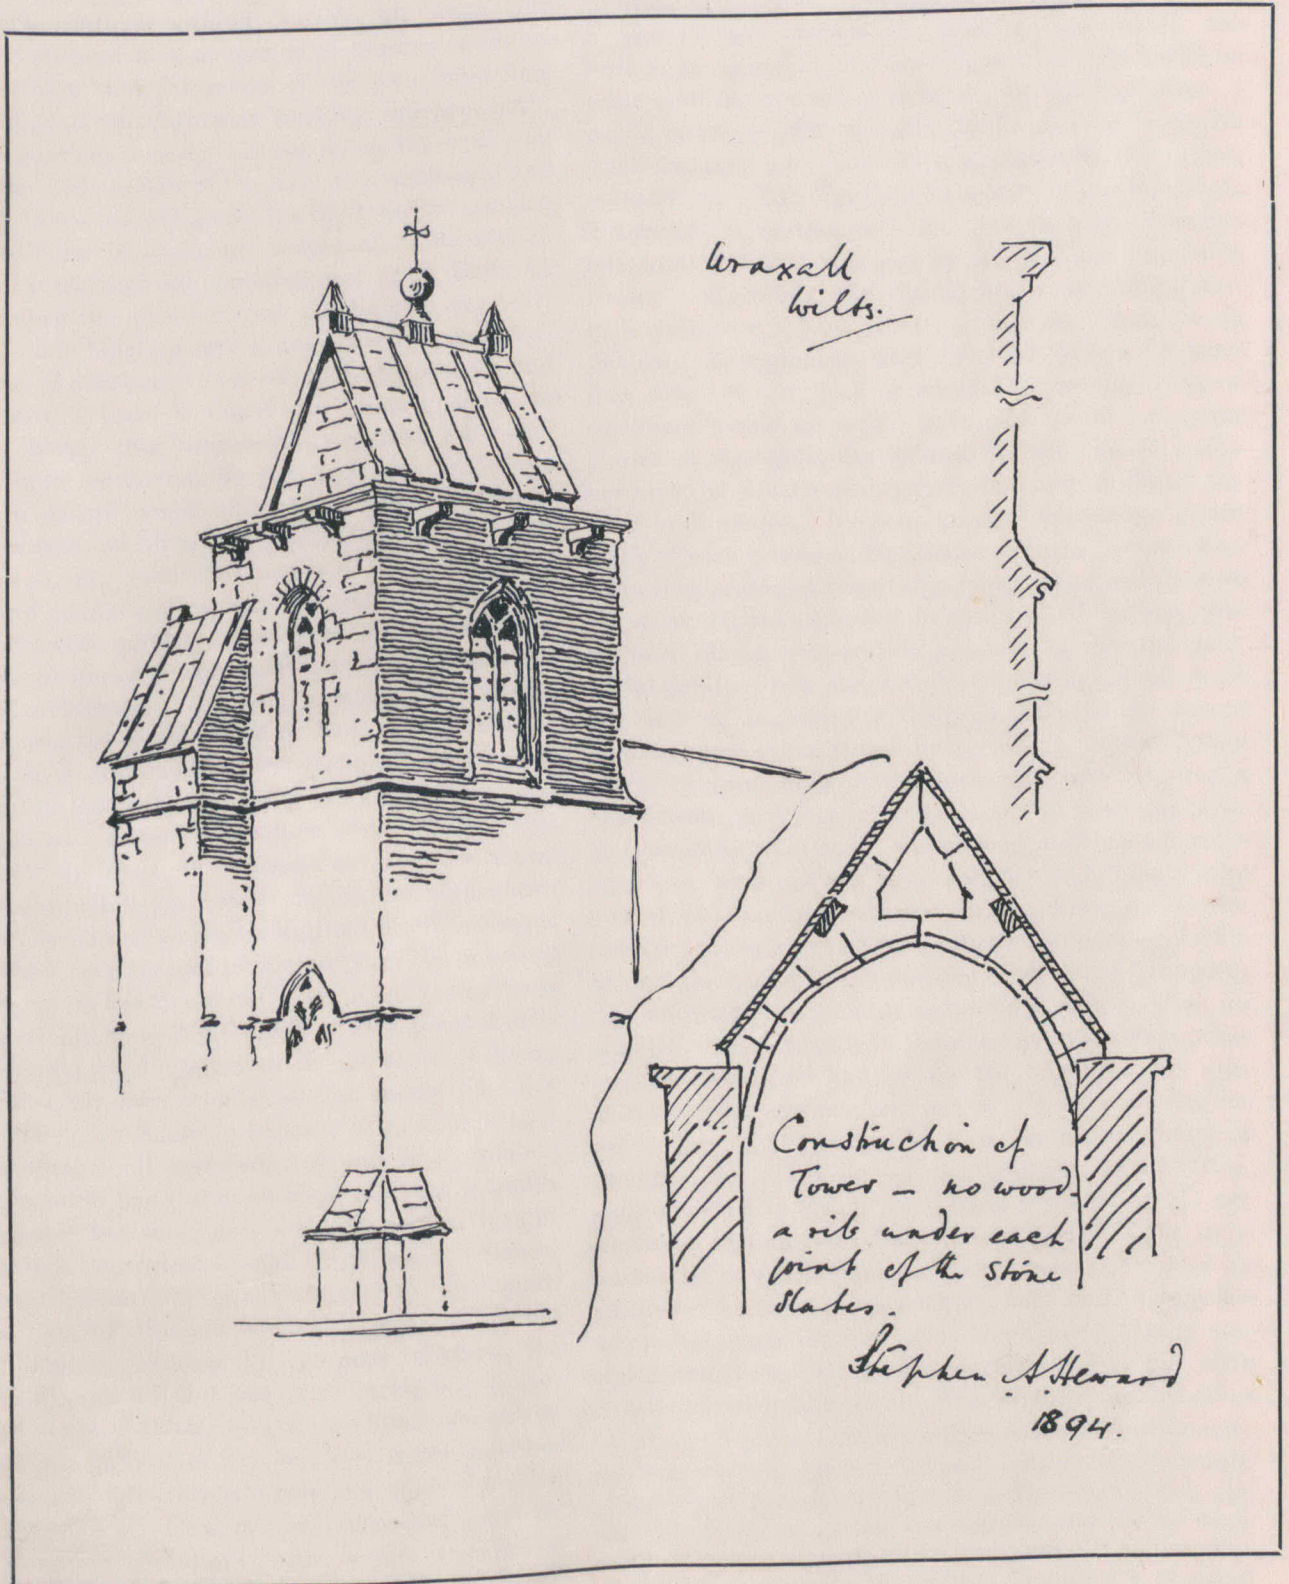 Wraxall
Wilts.
Construction of
Tower – no wood.
a rib under each
joint of the Stone
Slates.
Stephen A. Heward
1894.